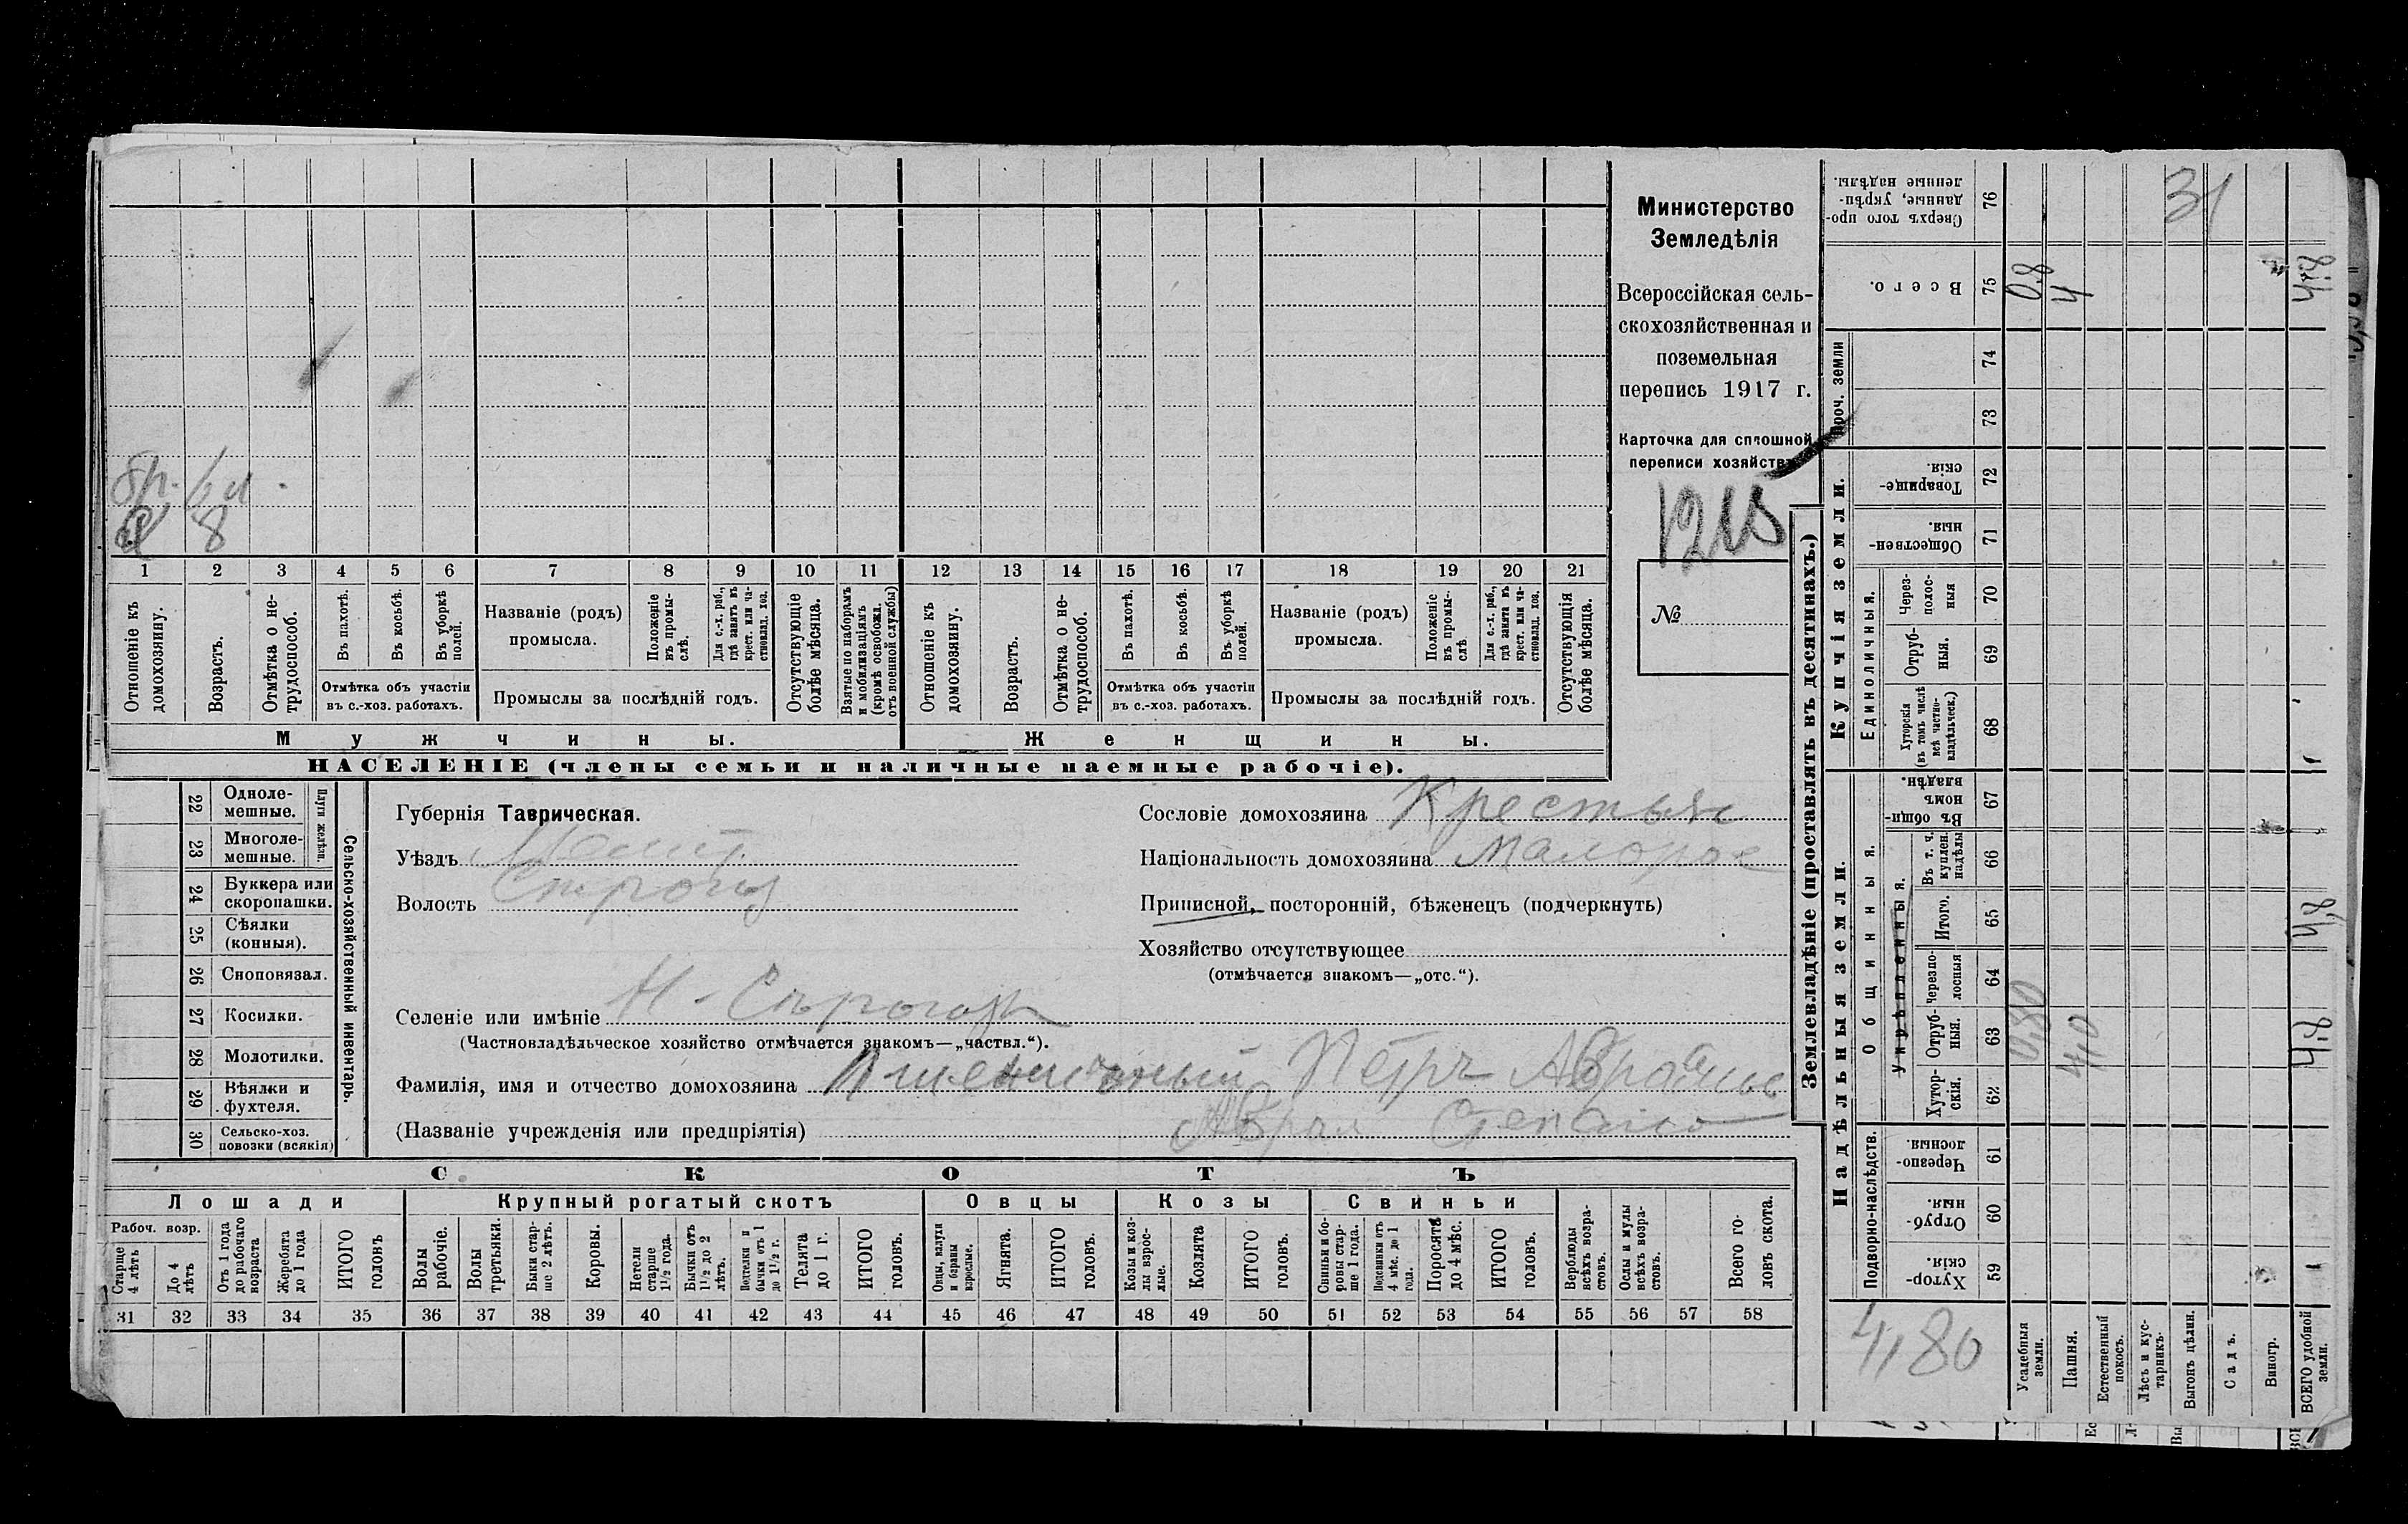 Министерство
Земледѣлія
Всероссійская сель-
скохозяйственная и
поземельная
перепись 1917 г.
Карточка для сплошной
переписи хозяйствъ
1215
№
бр.
8
1 2 3 4 5 6 7 8 9 10 11 12 13 14 15 16 17 18 19 20 21
Отношеніе къ домохозяину.
Возрастъ.
Отмѣтка о не-трудоспособ.
Въ пахотѣ.
Въ косьбѣ.
Въ уборкѣ полей.
Отмѣтка объ участіи въ с.-хоз. работахъ.
Названіе (родъ) промысла.
Положеніе въ промы-слѣ.
Для с.-х. раб., гдѣ занятъ въ крест. или ча-стновлад. хоз.
Промыслы за послѣдній годъ.
Отсутствующіе болѣе мѣсяца.
Взятые по наборамъ и мобилизаціямъ (кромѣ освобожд. отъ военной службы)
Отношеніе къ домохозяину.
Возрастъ.
Отмѣтка о не-трудоспособ.
Въ пахотѣ.
Въ косьбѣ.
Въ уборкѣ полей.
Отмѣтка объ участіи въ с.-хоз. работахъ.
Названіе (родъ) промысла.
Положеніе въ промы-слѣ.
Для с.-х. раб., гдѣ занята въ крест. или ча-стновлад. хоз.
Промыслы за послѣдній годъ.
Отсутствующія болѣе мѣсяца.
Мужчины.
Женщины.
НАСЕЛЕНІЕ (члены семьи и наличные наемные рабочіе).
Сельско-хозяйственный инвентарь.
Плуги желѣзн.
22 Одноле-мешные.
23 Многоле-мешные.
24 Буккера или скоропашки.
25 Сѣялки (конныя).
26 Сноповязал.
27 Косилки.
28 Молотилки.
29 Вѣялки и фухтеля.
30 Сельско-хоз. повозки (всякія)
Губернія Таврическая.
Уѣздъ Мелит.
Волость
Селеніе или имѣніе Н-Сѣрогозы
(Частновладѣльческое хозяйство отмѣчается знакомъ—„частвл.“).
Фамилія, имя и отчество домохозяина Пшеничный Петръ
(Названіе учрежденія или предпріятія)
Сословіе домохозяина Крестьян
Національность домохозяина Малорос
Приписной, посторонній, бѣженецъ (подчеркнуть)
Хозяйство отсутствующее
(отмѣчается знакомъ—„отс.“).
СКОТЪ
Лошади
Крупный рогатый скотъ
Овцы
Козы
Свиньи
Рабоч. возр.
Старше 4 лѣтъ
До 4 лѣтъ
Отъ 1 года до рабочаго возраста
Жеребята до 1 года
ИТОГО головъ
Волы рабочіе.
Волы третьяки.
Быки стар-ше 2 лѣтъ.
Коровы.
Нетели старше 1½ года.
Бычки отъ 1½ до 2 лѣтъ.
бычки отъ 1 до 1½ г.
Телята до 1 г.
ИТОГО головъ.
Овцы, валухи и бараны взрослые.
Ягнята.
ИТОГО головъ.
Козы и коз-лы взрос-лые.
Козлята
ИТОГО головъ.
Свиньи и бо-ровы стар-ше 1 года.
Подсвинки отъ 4 мѣс. до 1 года.
Поросята до 4 мѣс.
ИТОГО головъ.
Верблюды всѣхъ возра-стовъ.
Ослы и мулы всѣхъ возра-стовъ.
Всего го-ловъ скота.
31 32 33 34 35 36 37 38 39 40 41 42 43 44 45 46 47 48 49 50 51 52 53 54 55 56 57 58
Землевладѣніе (проставлять въ десятинахъ.)
Надѣльныя земли.
Купчія земли.
Проч. земли
Подворно-наслѣдств.
Общинныя.
Укрѣпленныя.
Единоличныя.
Хутор-скія. 59
Отруб-ныя. 60
Черезпо-лосныя. 61
Хутор-скія. 62
Отруб-ныя. 63
Черезпо-лосныя 64
Итого. 65
Въ т. ч. куплен. надѣлы 66
Въ общи-номъ владѣн. 67
Хуторскія (въ томъ числѣ всѣ частно-владѣльческ.) 68
Отруб-ныя. 69
Через-полос-ныя 70
Обществен-ныя. 71
Товарище-скія. 72
73
74
Всего. 75
Сверхъ того про-данные, укрѣп-ленные надѣлы. 76
4,80
Усадебныя земли. 0,80 0,8
Пашня. 4,0 4
Естественный покосъ.
Лѣсъ и кус-тарникъ.
Выгонъ цѣлин. 31
Садъ.
Виногр.
ВСЕГО удобной земли. 4,8 4,8 4,8